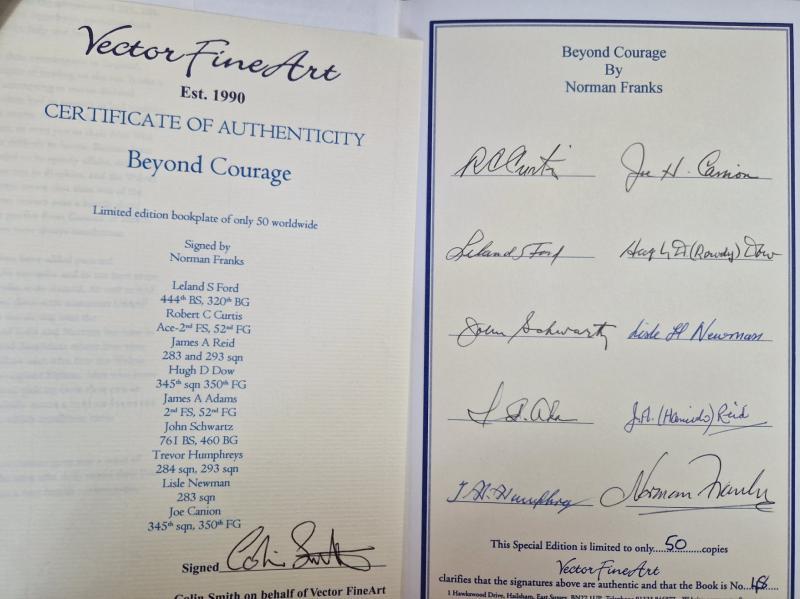 Vector Fine Art
Est. 1990
CERTIFICATE OF AUTHENTICITY
Beyond Courage
Limited edition bookplate of only 50 worldwide
Signed by
Norman Franks
Leland S Ford
444th BS, 320th BG
Robert C Curtis
Ace-2nd FS, 52nd FG
James A Reid
283 and 293 sqn
Hugh D Dow
345th sqn 350th FG
James A Adams
2nd FS, 52nd FG
John Schwartz
761 BS, 460 BG
Trevor Humphreys
284 sqn, 293 sqn
Lisle Newman
283 sqn
Joe Canion
345th sqn, 350th FG
Signed Colin Smith
Colin Smith on behalf of Vector FineArt
Beyond Courage
By
Norman Franks
R C Curtis Joe H. Canion
Leland S Ford Hugh D (Rowdy) Dow
John Schwartz Lisle H Newman
J.A. (Hamish) Reid
T. H. Humphreys Norman Franks
This Special Edition is limited to only.....50......copies
Vector Fine Art
clarifies that the signatures above are authentic and that the Book is No..48....
1 Hawkswood Drive, Hailsham, East Sussex